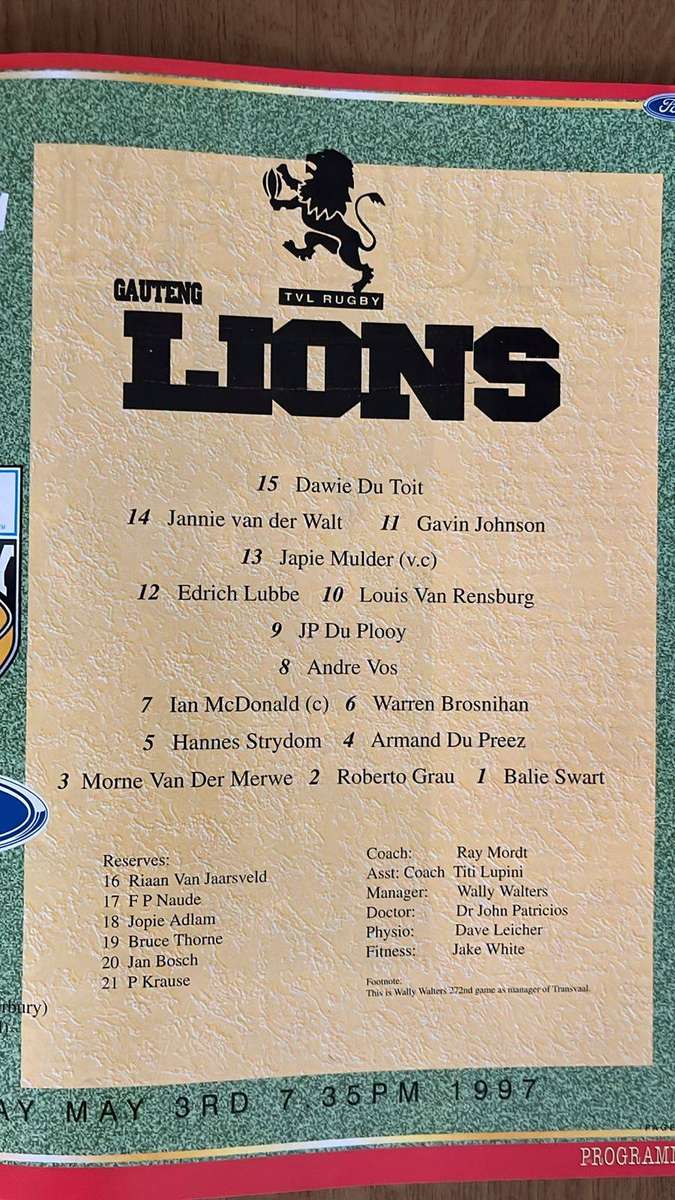 GAUTENG
TVL RUGBY
LIONS
15 Dawie Du Toit
14 Jannie van der Walt 11 Gavin Johnson
13 Japie Mulder (v.c)
12 Edrich Lubbe 10 Louis Van Rensburg
9 JP Du Plooy
8 Andre Vos
7 Ian McDonald (c) 6 Warren Brosnihan
5 Hannes Strydom 4 Armand Du Preez
3 Morne Van Der Merwe 2 Roberto Grau 1 Balie Swart
Reserves:
16 Riaan Van Jaarsveld
17 F P Naude
18 Jopie Adlam
19 Bruce Thorne
20 Jan Bosch
21 P Krause
Coach: Ray Mordt
Asst: Coach Titi Lupini
Manager: Wally Walters
Doctor: Dr John Patricios
Physio: Dave Leicher
Fitness: Jake White
Footnote:
This is Wally Walters 272nd game as manager of Transvaal.
MAY 3RD 7.35PM 1997